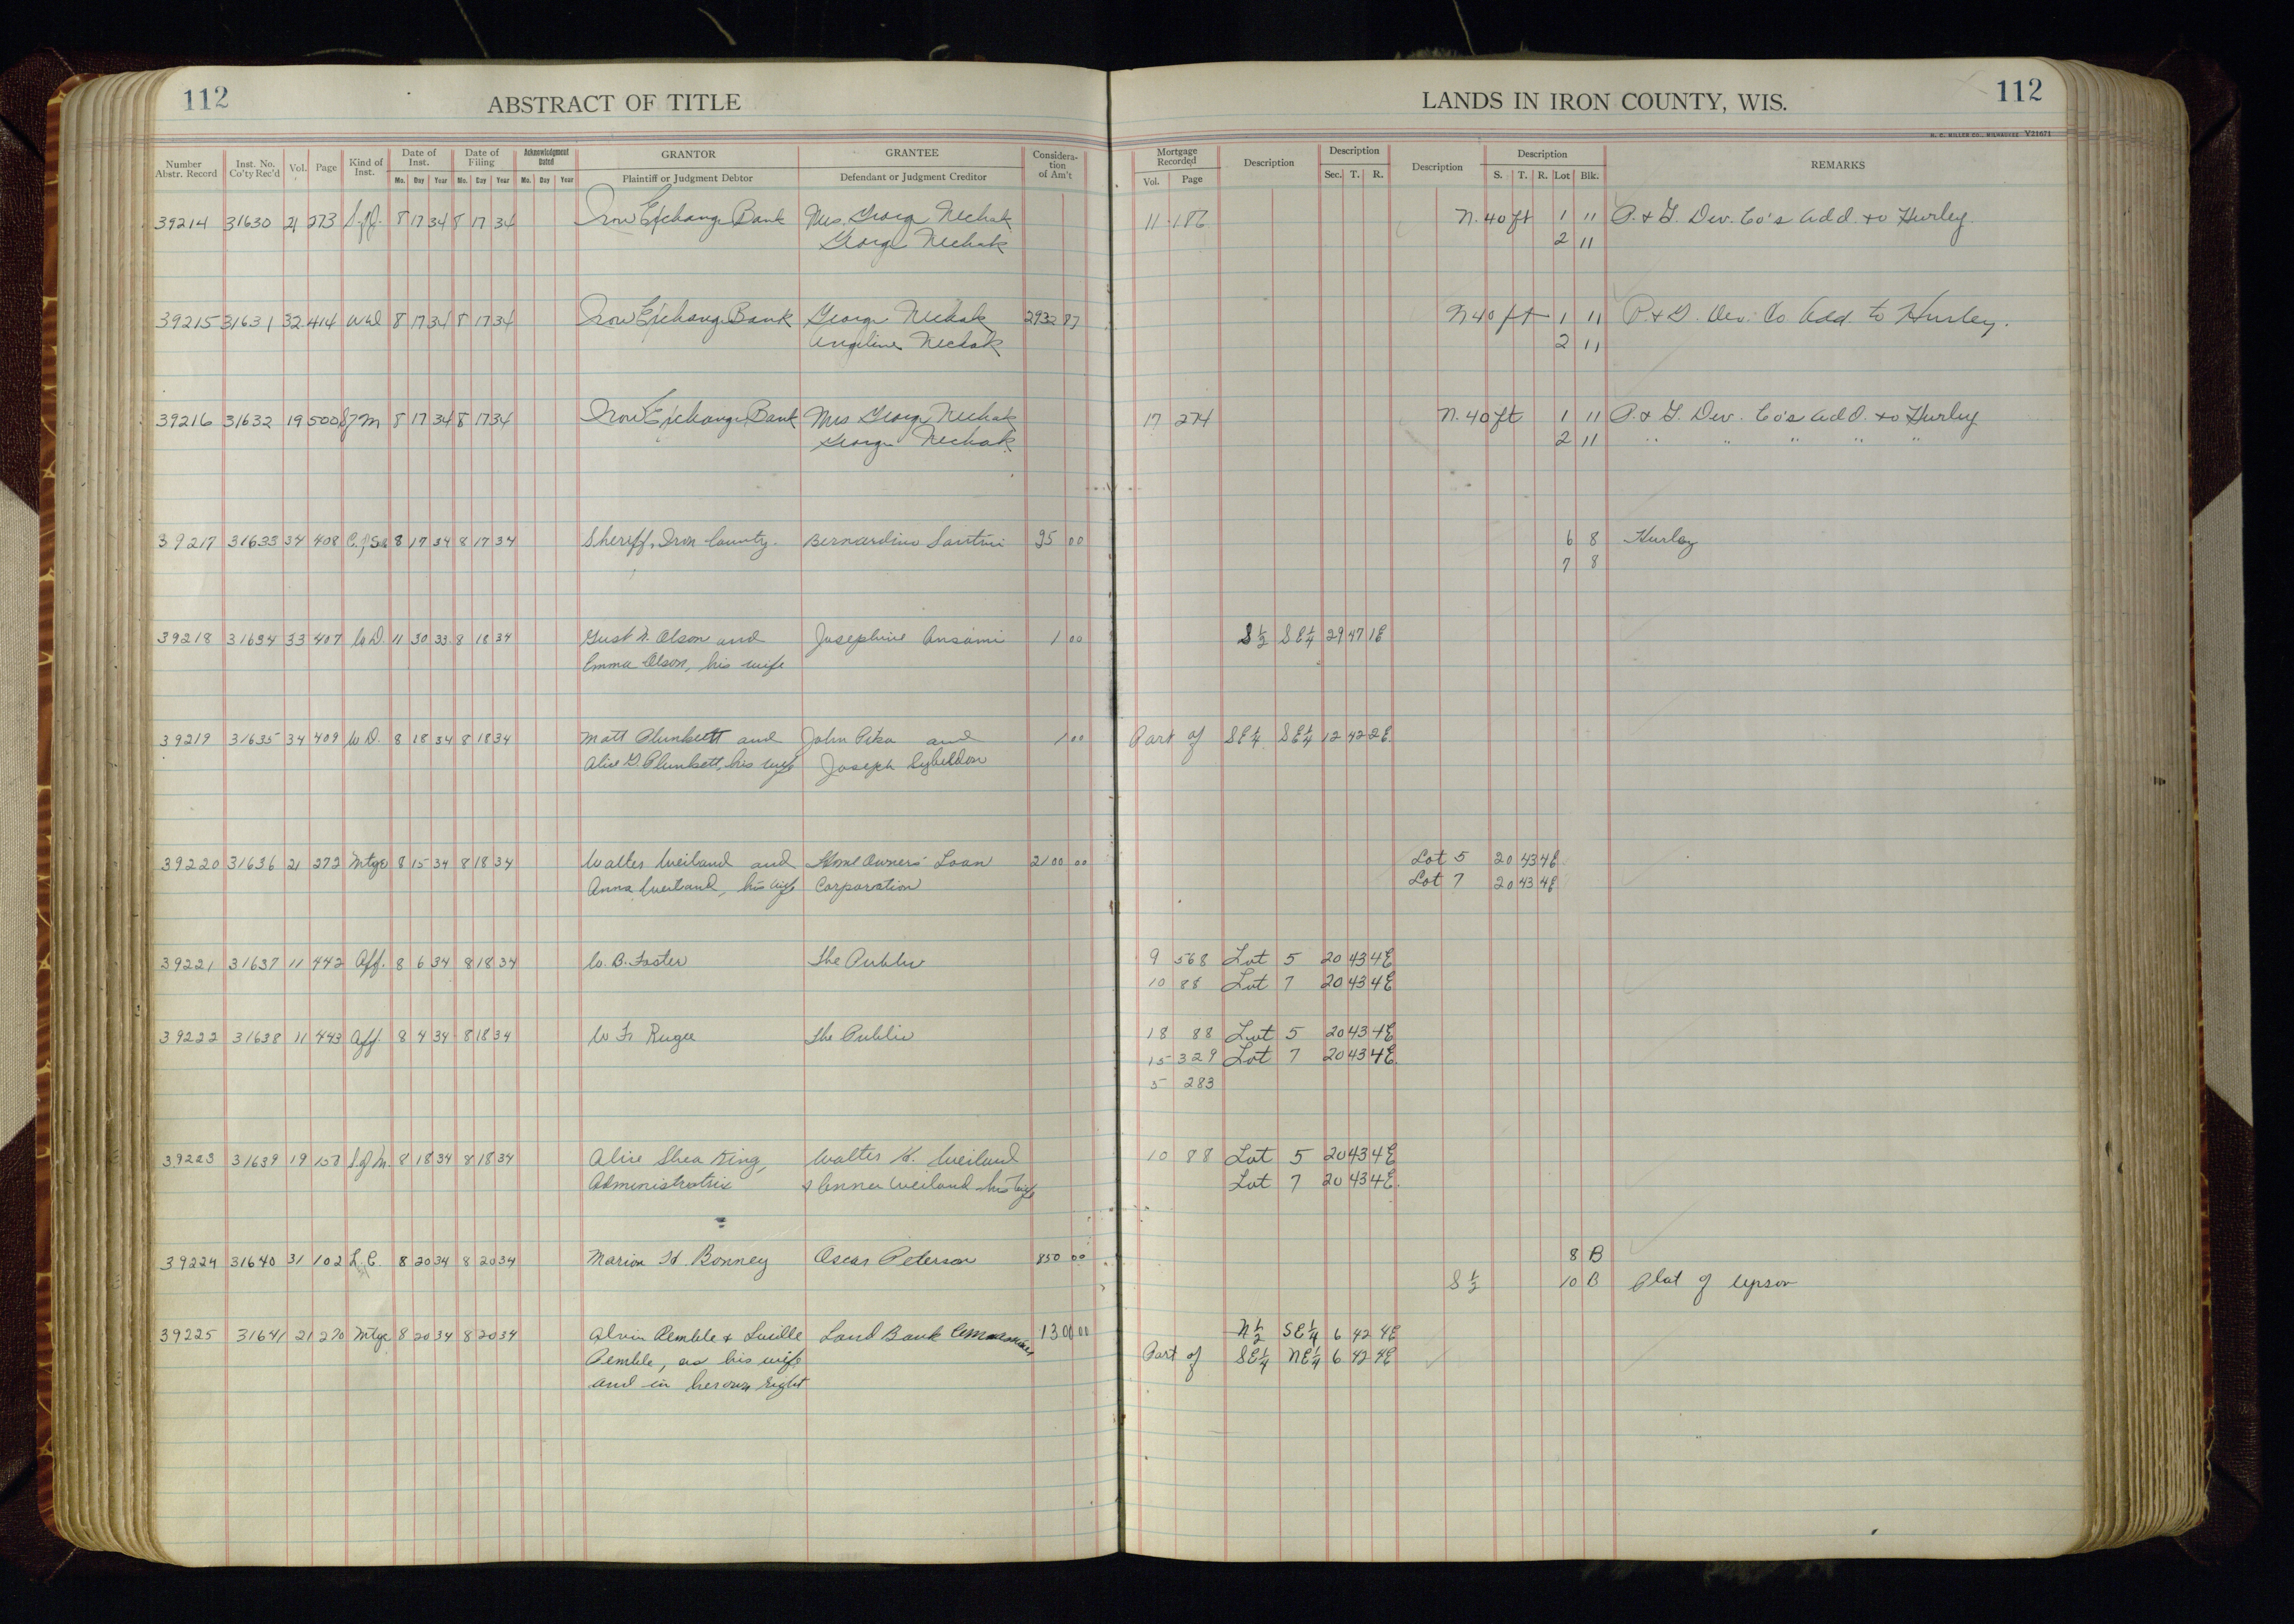 112
ABSTRACT OF TITLE
LANDS IN IRON COUNTY, WIS.
112
H. C. MILLER CO., MILWAUKEE Y21671
Number Abstr. Record Inst. No. Co'ty Rec'd Vol. Page Kind of Inst. Date of Inst. Date of Filing Acknowledgment Dated GRANTOR GRANTEE Consideration of Am't Mortgage Recorded Description Description Description Description REMARKS
Mo. Day Year Mo. Day Year Mo. Day Year Plaintiff or Judgment Debtor Defendant or Judgment Creditor Vol. Page Sec. T. R. S. T. R. Lot Blk.
39214 31630 21 273 8 17 34 8 17 34 Iron Exchange Bank Mrs. George Nechak 11 186 N. 40 ft 1 11 Dev. Co's Add. to Hurley
George Nechak 2 11
39215 31631 32 414 8 17 34 8 17 34 Iron Exchange Bank George Nechak 2932 87 N 40 ft 1 11 Dev. Co Add. to Hurley.
Angeline Nechak 2 11
39216 31632 19 500 8 17 34 8 17 34 Iron Exchange Bank Mrs George Nechak 17 274 N. 40 ft 1 11 Dev. Co's Add. to Hurley
George Nechak 2 11 " " " " "
39217 31633 34 408 8 17 34 8 17 34 Sheriff, Iron County. Bernardino Santini 95 00 6 8 Hurley
7 8
39218 31634 33 407 W D. 11 30 33 8 18 34 Gust A. Olson and Josephine Ansami 1 00 S 1/2 SE 1/4 29 47 1E
Emma Olson, his wife
39219 31635 34 409 W D. 8 18 34 8 18 34 Matt Plunkett and John Pika and 1 00 Part of SE 1/4 SE 1/4 12 42 2E
Alice G. Plunkett, his wife Joseph Sybeldon
39220 31636 21 272 Mtge 8 15 34 8 18 34 Walter Weiland and Home Owners' Loan 2100 00 Lot 5 20 43 4E
Anna Weiland, his wife Corporation Lot 7 20 43 4E
39221 31637 11 442 Aff. 8 6 34 8 18 34 W. B. Foster The Public 9 568 Lot 5 20 43 4E
10 88 Lot 7 20 43 4E
39222 31638 11 443 Aff. 8 4 34 8 18 34 W F. Rugee The Public 18 88 Lot 5 20 43 4E
15 329 Lot 7 20 43 4E
5 283
39223 31639 19 S. of M. 8 18 34 8 18 34 Alice Shea King, Walter H. Weiland 10 88 Lot 5 20 43 4E
Administratrix & Anna Weiland his wife Lot 7 20 43 4E.
39224 31640 31 102 L. C. 8 20 34 8 20 34 Marion H. Bonney Oscar Peterson 850 00 8 B
S 1/2 10 B Plat of Upson
39225 31641 21 270 Mtge 8 20 34 8 20 34 Alvin Pemble & Lucille Land Bank 1300 00 N 1/2 SE 1/4 6 42 4E
Pemble, as his wife Part of SE 1/4 NE 1/4 6 42 4E
and in her own right